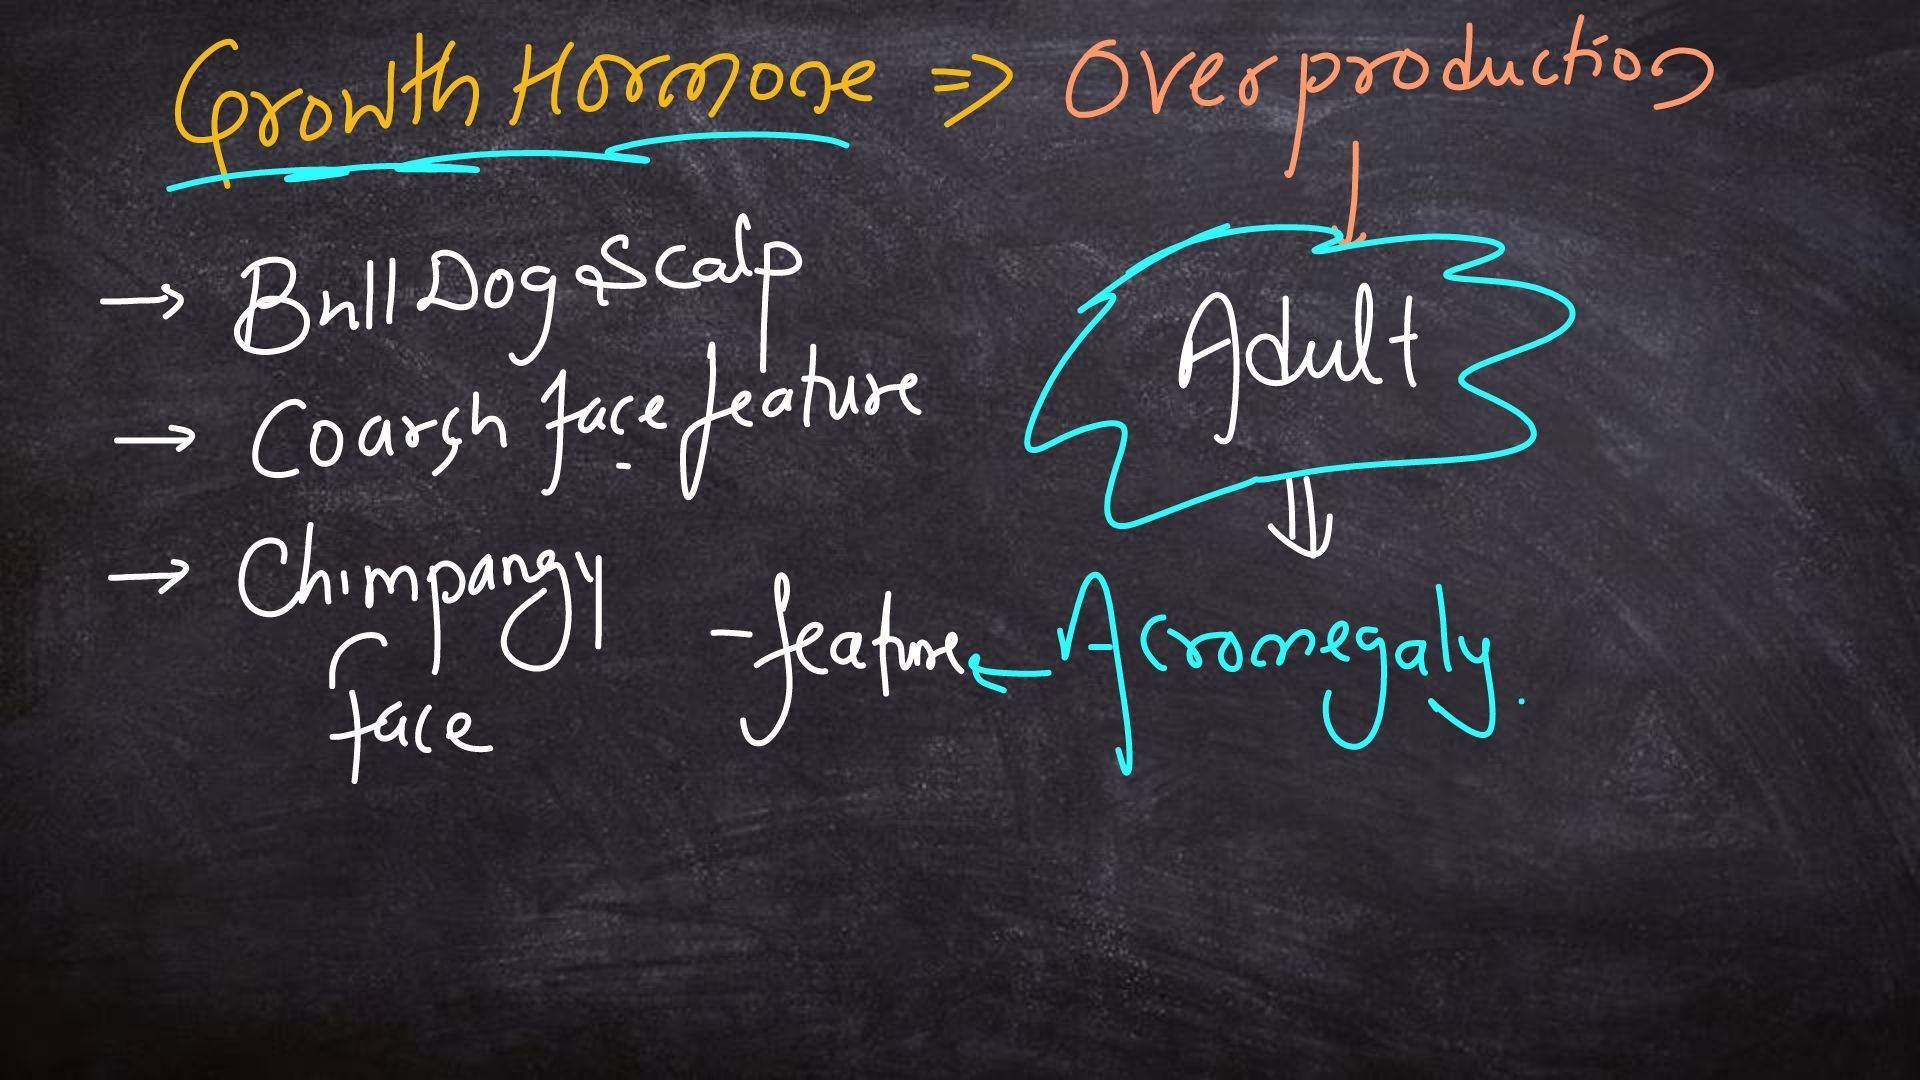 Growth Hormone => Overproduction
→ Bull Dog Scalp
Adult
→ Coarsh face feature
→ Chimpangy
face
-feature ← Acromegaly.